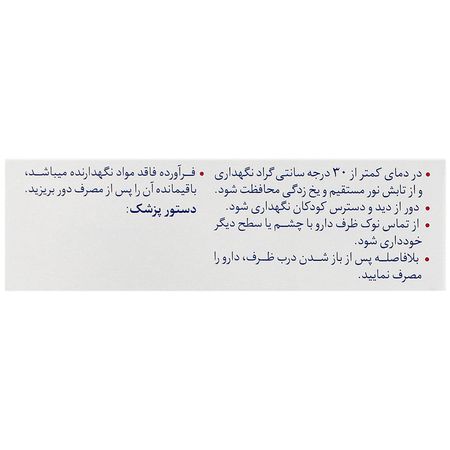 • در دمای کمتر از ۳۰ درجه سانتی گراد نگهداری
و از تابش نور مستقیم و یخ زدگی محافظت شود.
• دور از دید و دسترس کودکان نگهداری شود.
• از تماس نوک ظرف دارو با چشم یا سطح دیگر
خودداری شود.
• بلافاصله پس از باز شدن درب ظرف، دارو را
مصرف نمایید.
• فرآورده فاقد مواد نگهدارنده میباشد،
باقیمانده آن را پس از مصرف دور بریزید.
دستور پزشک: